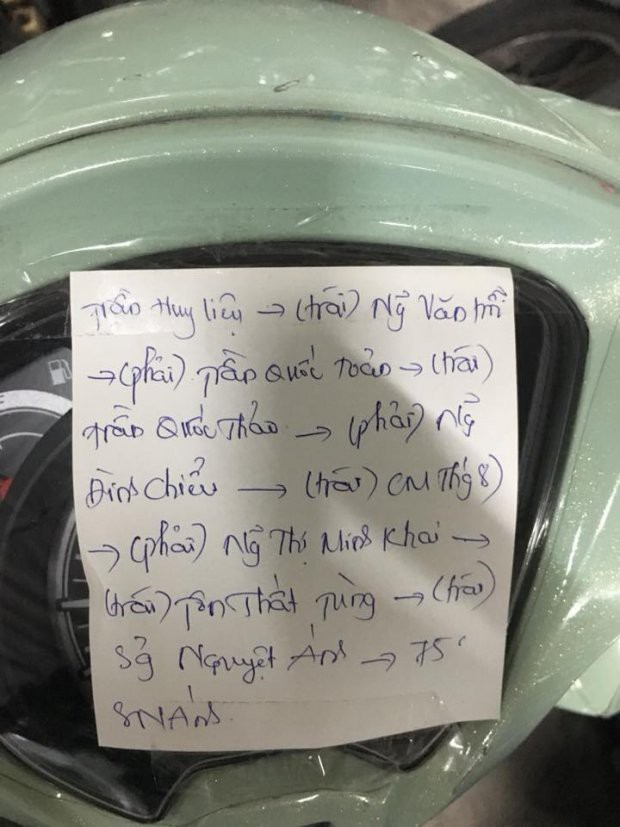 Trần Huy Liệu → (trái) Ng̃ Văn Trỗi
→ (phải) Trần Quốc Toản → (trái)
Trần Quốc Thảo → (phải) Ng̃
Đình Chiểu → (trái) CM Thg 8)
→ (phải) Ng̃ Thị Minh Khai →
(trái) Tôn Thất Tùng → (trái)
Sg Nguyệt Ánh → 75
SNÁnh